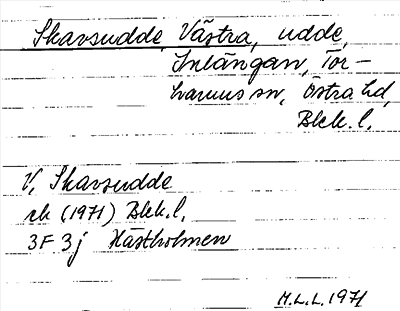 Skavsudde, Västra, udde,
Inlängan, Tor-
hamns sn, Östra hd,
Blek. l.
V. Skavsudde
ek (1971) Blek. l.
3F 3j Hästholmen
M.L.L. 1971